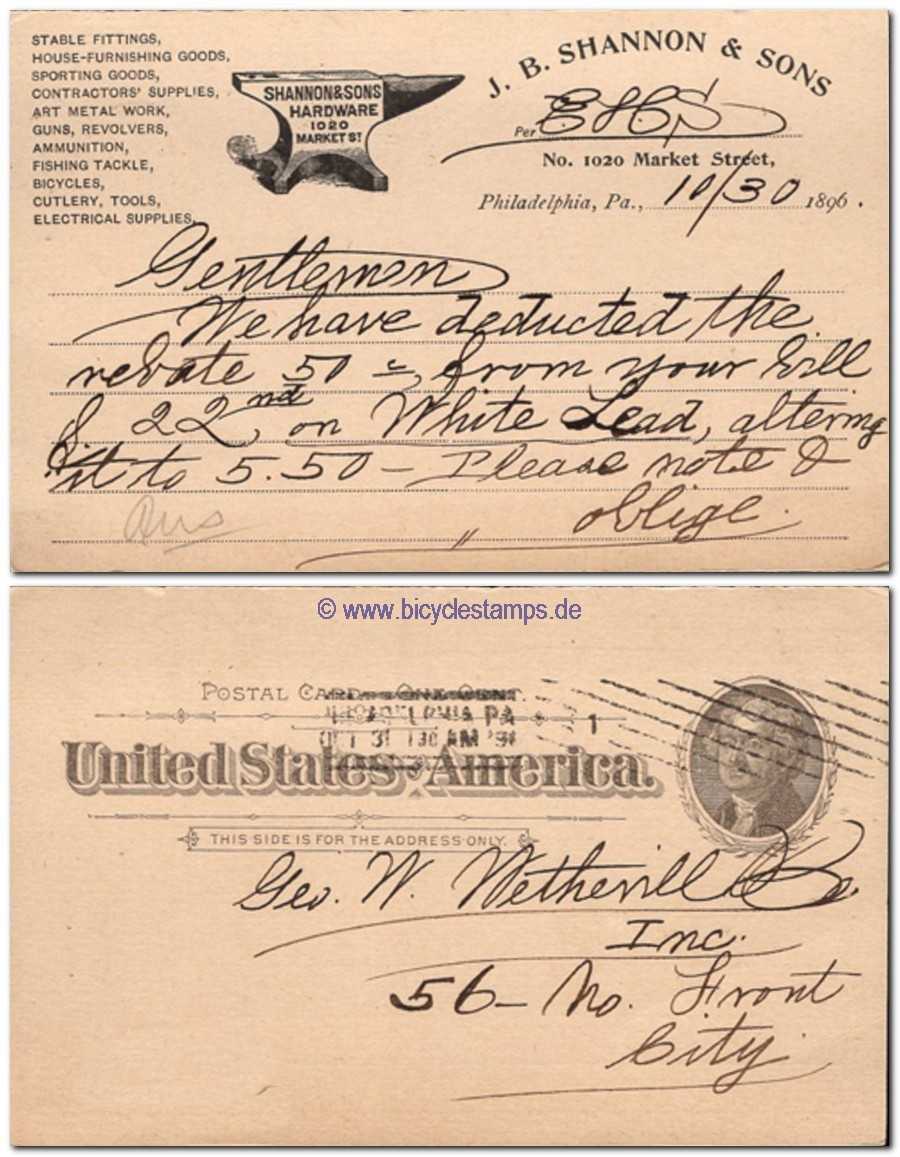 STABLE FITTINGS,
HOUSE-FURNISHING GOODS,
SPORTING GOODS,
CONTRACTORS' SUPPLIES,
ART METAL WORK,
GUNS, REVOLVERS,
AMMUNITION,
FISHING TACKLE,
BICYCLES,
CUTLERY, TOOLS,
ELECTRICAL SUPPLIES,
SHANNON & SONS
HARDWARE
1020
MARKET ST
J. B. SHANNON & SONS
Per
No. 1020 Market Street,
Philadelphia, Pa., 10/30 1896.
Gentlemen
We have deducted the
rebate 50 c, from your bill
22nd, on White Lead, altering
it to 5.50 - Please note &
oblige.
Ans
© www.bicyclestamps.de
POSTAL CARD - ONE CENT.
PHILADELPHIA PA
OCT 31 130 AM '96 1
United States of America.
THIS SIDE IS FOR THE ADDRESS ONLY.
Geo. W. Wetherill & Co.
Inc.
56 - No. Front
City.